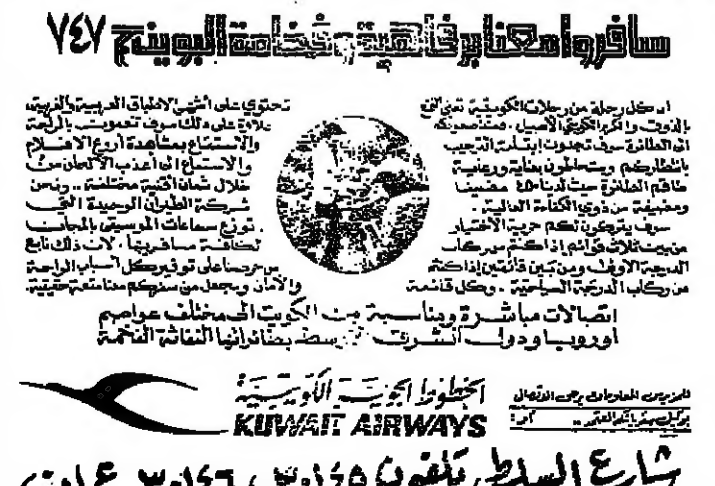 سافروا معنا برفاهية وفخامة البوينج ٧٤٧
ان كل رحلة من رحلات الكويتية تعني التمتع
بالذوق والكرم الكويتي الأصيل. فمنذ صعودكم
الى الطائرة سوف تجدون ابتسامة الترحيب
بانتظاركم وستحاطون بعناية ورعاية
طاقم الطائرة حيث لدينا ١٥ مضيفا
ومضيفة من ذوي الكفاءة العالية.
سوف يتركون لكم حرية الأختيار
من بين ثلاث قوائم إذا كنتم من ركاب
الدرجة الاولى ومن بين قائمتين إذا كنتم
من ركاب الدرجة السياحية. وكل قائمة
تحتوي على أشهى الاطباق العربية والغربية،
علاوة على ذلك سوف تنعمون بالراحة
والاستمتاع بمشاهدة أروع الافلام
والاستماع الى أعذب الألحان من
خلال ثمان اقنية مختلفة.. ونحن
شركة الطيران الوحيدة التي
توزع سماعات الموسيقى بالمجان
لكافة مسافريها، لان ذلك نابع
من حرصنا على توفير كل أسباب الراحة
والأمان ونجعل من سفركم معنا متعة حقيقية.
اتصالات مباشرة ومناسبة من الكويت الى مختلف عواصم
اوروبا ودول الشرق الأوسط بطائراتها النفاثة الفخمة
الخطوط الجوية الكويتية
KUWAIT AIRWAYS
للمزيد من المعلومات يرجى الاتصال
بوكيل سفرياتكم المعتمد .. أو:
شارع السلط، تلفون